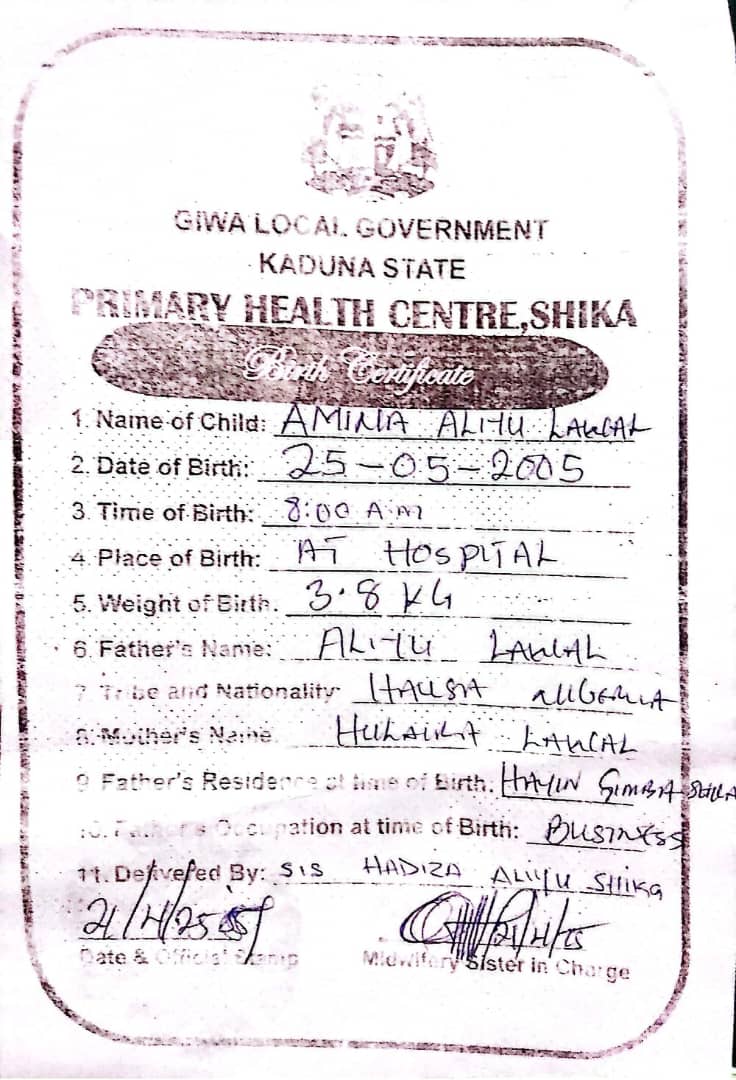 GIWA LOCAL GOVERNMENT
KADUNA STATE
PRIMARY HEALTH CENTRE,SHIKA
Birth Certificate
1. Name of Child: AMINA ALIYU LAWAL
2. Date of Birth: 25-05-2005
3. Time of Birth: 8:00 AM
4. Place of Birth: AT HOSPITAL
5. Weight of Birth. 3.8 KG
6. Father's Name: ALIYU LAWAL
7. Tribe and Nationality HAUSA NIGERIA
8. Mother's Name HULAIRA LAWAL
9 Father's Residence at time of Birth: HAYIN GIMBA SHIKA
10. Father's Occupation at time of Birth: BUSINESS
11. Delivered By: SIS HADIZA ALIYU SHIKA
21/4/25 21/4/25
Date & Official Stamp Midwifery Sister in Charge